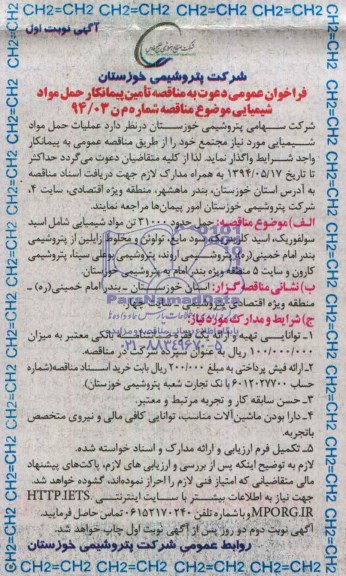 آگهی نوبت اول
شرکت پتروشیمی خوزستان
فراخوان عمومی دعوت به مناقصه تأمین پیمانکار حمل مواد
شیمیایی موضوع مناقصه شماره م ن ۹۴/۰۳
شرکت سهامی پتروشیمی خوزستان درنظر دارد عملیات حمل مواد
شیمیایی مورد نیاز مجتمع خود را از طریق مناقصه عمومی به پیمانکار
واجد شرایط واگذار نماید. لذا از کلیه متقاضیان دعوت می‌گردد حداکثر
تا تاریخ ۱۳۹۴/۰۵/۱۷ به همراه مدارک لازم جهت دریافت اسناد مناقصه
به آدرس استان خوزستان، بندر ماهشهر، منطقه ویژه اقتصادی، سایت ۴،
شرکت پتروشیمی خوزستان امور پیمان‌ها مراجعه نمایند.
الـف) موضوع مناقصه: حمل حدود ۳۱۰۰۰ تن مواد شیمیایی شامل اسید
سولفوریک، اسید کلریدریک، سود مایع، تولوئن و مخلوط زایلین از پتروشیمی
بندر امام خمینی(ره)، پتروشیمی اروند، پتروشیمی بوعلی سینا، پتروشیمی
کارون و سایت ۵ منطقه ویژه بندر امام به پتروشیمی خوزستان.
ب) نشانی مناقصه گزار: استان خوزستان - بندر امام خمینی(ره) -
منطقه ویژه اقتصادی پتروشیمی - سایت چهار
ج) شرایط و مدارک مورد نیاز:
۱- توانایی تهیه و ارائه یک فقره ضمانت‌نامه بانکی معتبر به میزان
۱۰۰/۰۰۰/۰۰۰ ریال به عنوان سپرده شرکت در مناقصه.
۲-ارائه فیش پرداختی به مبلغ ۲۰۰/۰۰۰ ریال بابت خرید اسناد مناقصه(شماره
حساب ۶۰۱۲۰۲۷۷۰۰ با نک تجارت شعبه پتروشیمی خوزستان).
۳- حسن سابقه کار و تجربه مرتبط و معتبر.
۴- دارا بودن ماشین‌آلات مناسب، توانایی کافی مالی و نیروی متخصص
باتجربه.
۵- تکمیل فرم ارزیابی و ارائه مدارک و اسناد خواسته شده.
لازم به توضیح اینکه پس از بررسی و ارزیابی های لازم، پاکت‌های پیشنهاد
مالی متقاضیانی که امتیاز فنی لازم را احراز نموده‌اند، گشوده خواهد شد.
جهت نیاز به اطلاعات بیشتر با سایت اینترنتی HTTP.IETS.
MPORG.IR و با شماره تلفن ۰۶۱۵۲۱۷۰۲۴۰ تماس حاصل فرمایید.
آگهی نوبت دوم دو روز پس از آگهی نوبت اول چاپ خواهد شد.
روابط عمومی شرکت پتروشیمی خوزستان
CH2=CH2 CH2=CH2 CH2=CH2 CH2=CH2 CH2=CH2
ParsNamadData
پایگاه اطلاع رسانی مناقصه و مزایده
۰۲۱-۸۸۳۴۹۶۷۰-۵